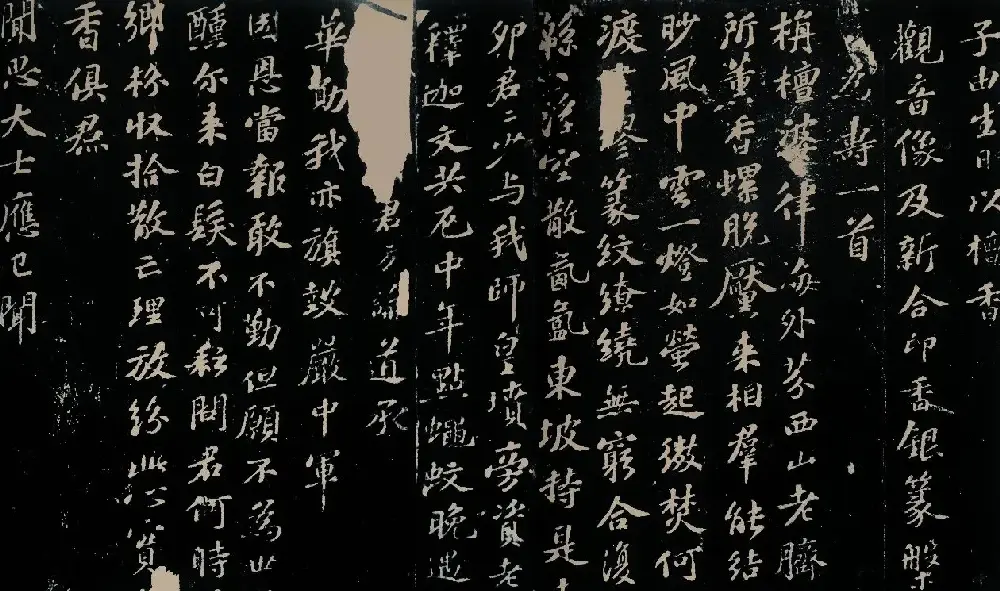 子由生日以檀香
觀音像及新合印香銀篆盤
為壽一首
栴檀婆律海外芬西山老臍
所薰香螺脫黶来相羣能結
眇風中雲一燈如螢起微焚何
度篆紋繚繞無窮合復
緜緜浮空散氤氳東坡持是
卯君君少与我師皇墳旁資老
釋迦文共厄中年點蠅蚊晚遇
君方論道承
華勛我亦旗鼓嚴中軍
国恩當報敢不勤但願不為世
醺尔来白髮不可耘問君何時
鄉枌收拾散亡理放紛此心實
香俱焄
聞思大士應已聞